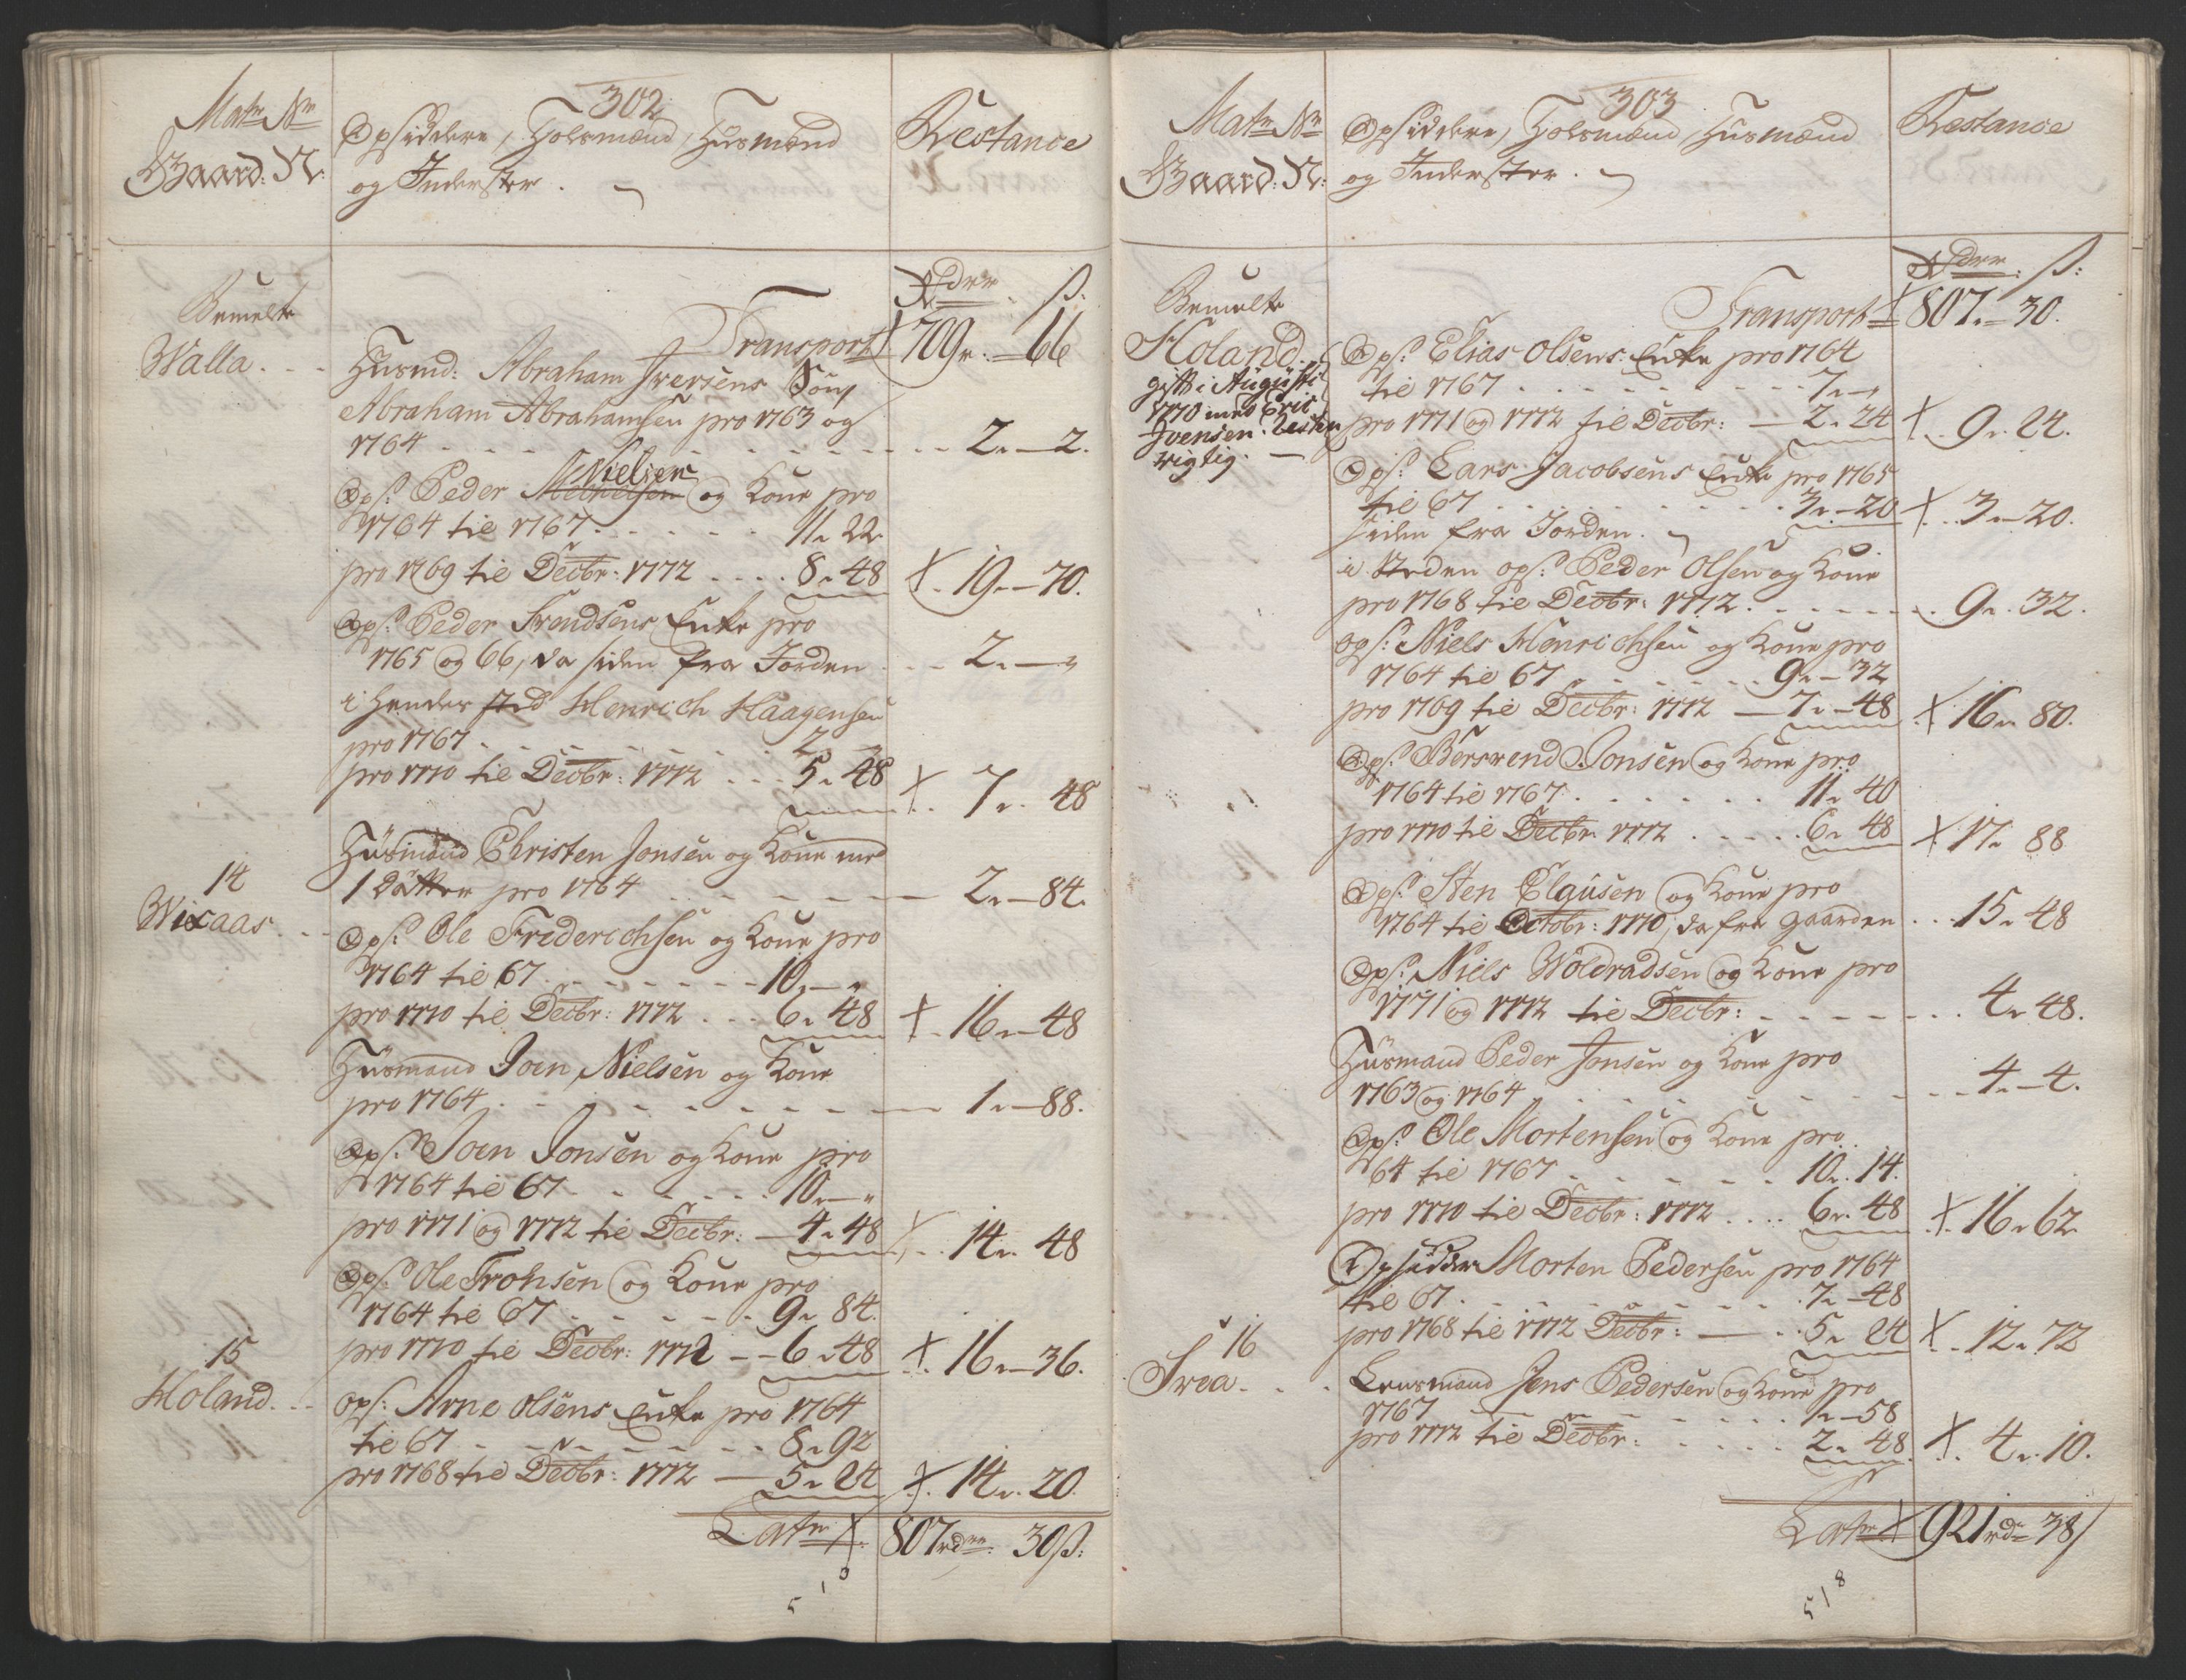 302
Matr No
Gaard: N:
Opsiddere, Holsmænd, Husmænd
og Inderster.
Restance
Rdrr ß:
Bemelte
Walla.
Transport 709 „ 66
Husmd: Abraham Iversens Søn
Abraham Abrahamsen pro 1763 og
1764 2 „ 2.
Nielsen
Ops: Peder og Kone pro
1764 til 1767 11 „ 22
pro 1769 til Decbr: 1772 8 „ 48 19 „ 70.
Ops: Peder Trendsens Enke pro
1765 og 66, da siden fra Jorden 2 „ „
i hendes sted Henrich Haagensen
pro 1767 2 „
pro 1770 til Decbr: 1772 5 „ 48 7 „ 48
Husmand Christen Jonsen og Kone med
1 Datter pro 1764 2 „ 84.
14
Wixaas
Ops: Ole Friderichsen og Kone pro
1764 til 67 10 „ „
pro 1770 til Decbr: 1772 6 „ 48 16 „ 48
Husmand Joen Nielsen og Kone
pro 1764 1 „ 88.
Ops: Joen Jonsen og Kone pro
1764 til 67 10 „ „
pro 1771 og 1772 til Decbr: 4 „ 48 14 „ 48
Ops: Ole Trohsen og Kone pro
1764 til 67 9 „ 84.
pro 1770 til Decbr: 1772 6 „ 48 16 „ 36.
15
Holand.
Ops: Arne Olsens Enke pro 1764
til 67 8 „ 92
pro 1768 til Decbr: 1772 5 „ 24 14 „ 20.
Latr 807 rdrr 30 ß:
303
Matr No
Gaard: N:
Opsiddere, Holsmænd, Husmænd
og Inderster.
Restance
Rdrr: ß:
Bemelte
Holand.
gift i Augusti
1770 med Eric
Ivensen.
rigtig.
Transport 807 „ 30.
Ops: Elias Olsens Enke pro 1764
til 1767 7 „ „
pro 1771 og 1772 til Decbr: 2 „ 24 9 „ 24.
Ops: Lars Jacobsens Enke pro 1765
til 67 3 „ 20 3 „ 20.
siden fra Jorden.
i Steden ops: Peder Olsen og Kone
pro 1768 til Decbr: 1772 9 „ 32.
Ops: Niels Henrichsen og Kone pro
1764 til 67 9 „ 32
pro 1769 til Decbr: 1772 7 „ 48 16 „ 80.
Ops: Bersvend Jonsen og Kone pro
1764 til 1767 11 „ 40
pro 1770 til Decbr 1772 6 „ 48 17 „ 88
Ops: Sten Clausen og Kone pro
1764 til Octobr: 1770, da fra gaarden 15 „ 48
Ops: Niels Woldradsen og Kone pro
1771 og 1772 til Decbr: 4 „ 48.
Husmand Peder Jonsen og Kone pro
1763 og 1764 4 „ 4.
Ops: Ole Mortensen og Kone pro
64 til 1767 10 „ 14.
pro 1770 til Decbr: 1772 6 „ 48 16 „ 62
Opsidder Morten Pedersen pro 1764
til 67 7 „ 48
pro 1768 til 1772 Decbr: 5 „ 24 12 „ 72
16
Svea.
Lensmand Jens Pedersen og Kone pro
1767 1 „ 58
pro 1772 til Decbr: 2 „ 48 4 „ 10.
Latr 921 rdr 38
518